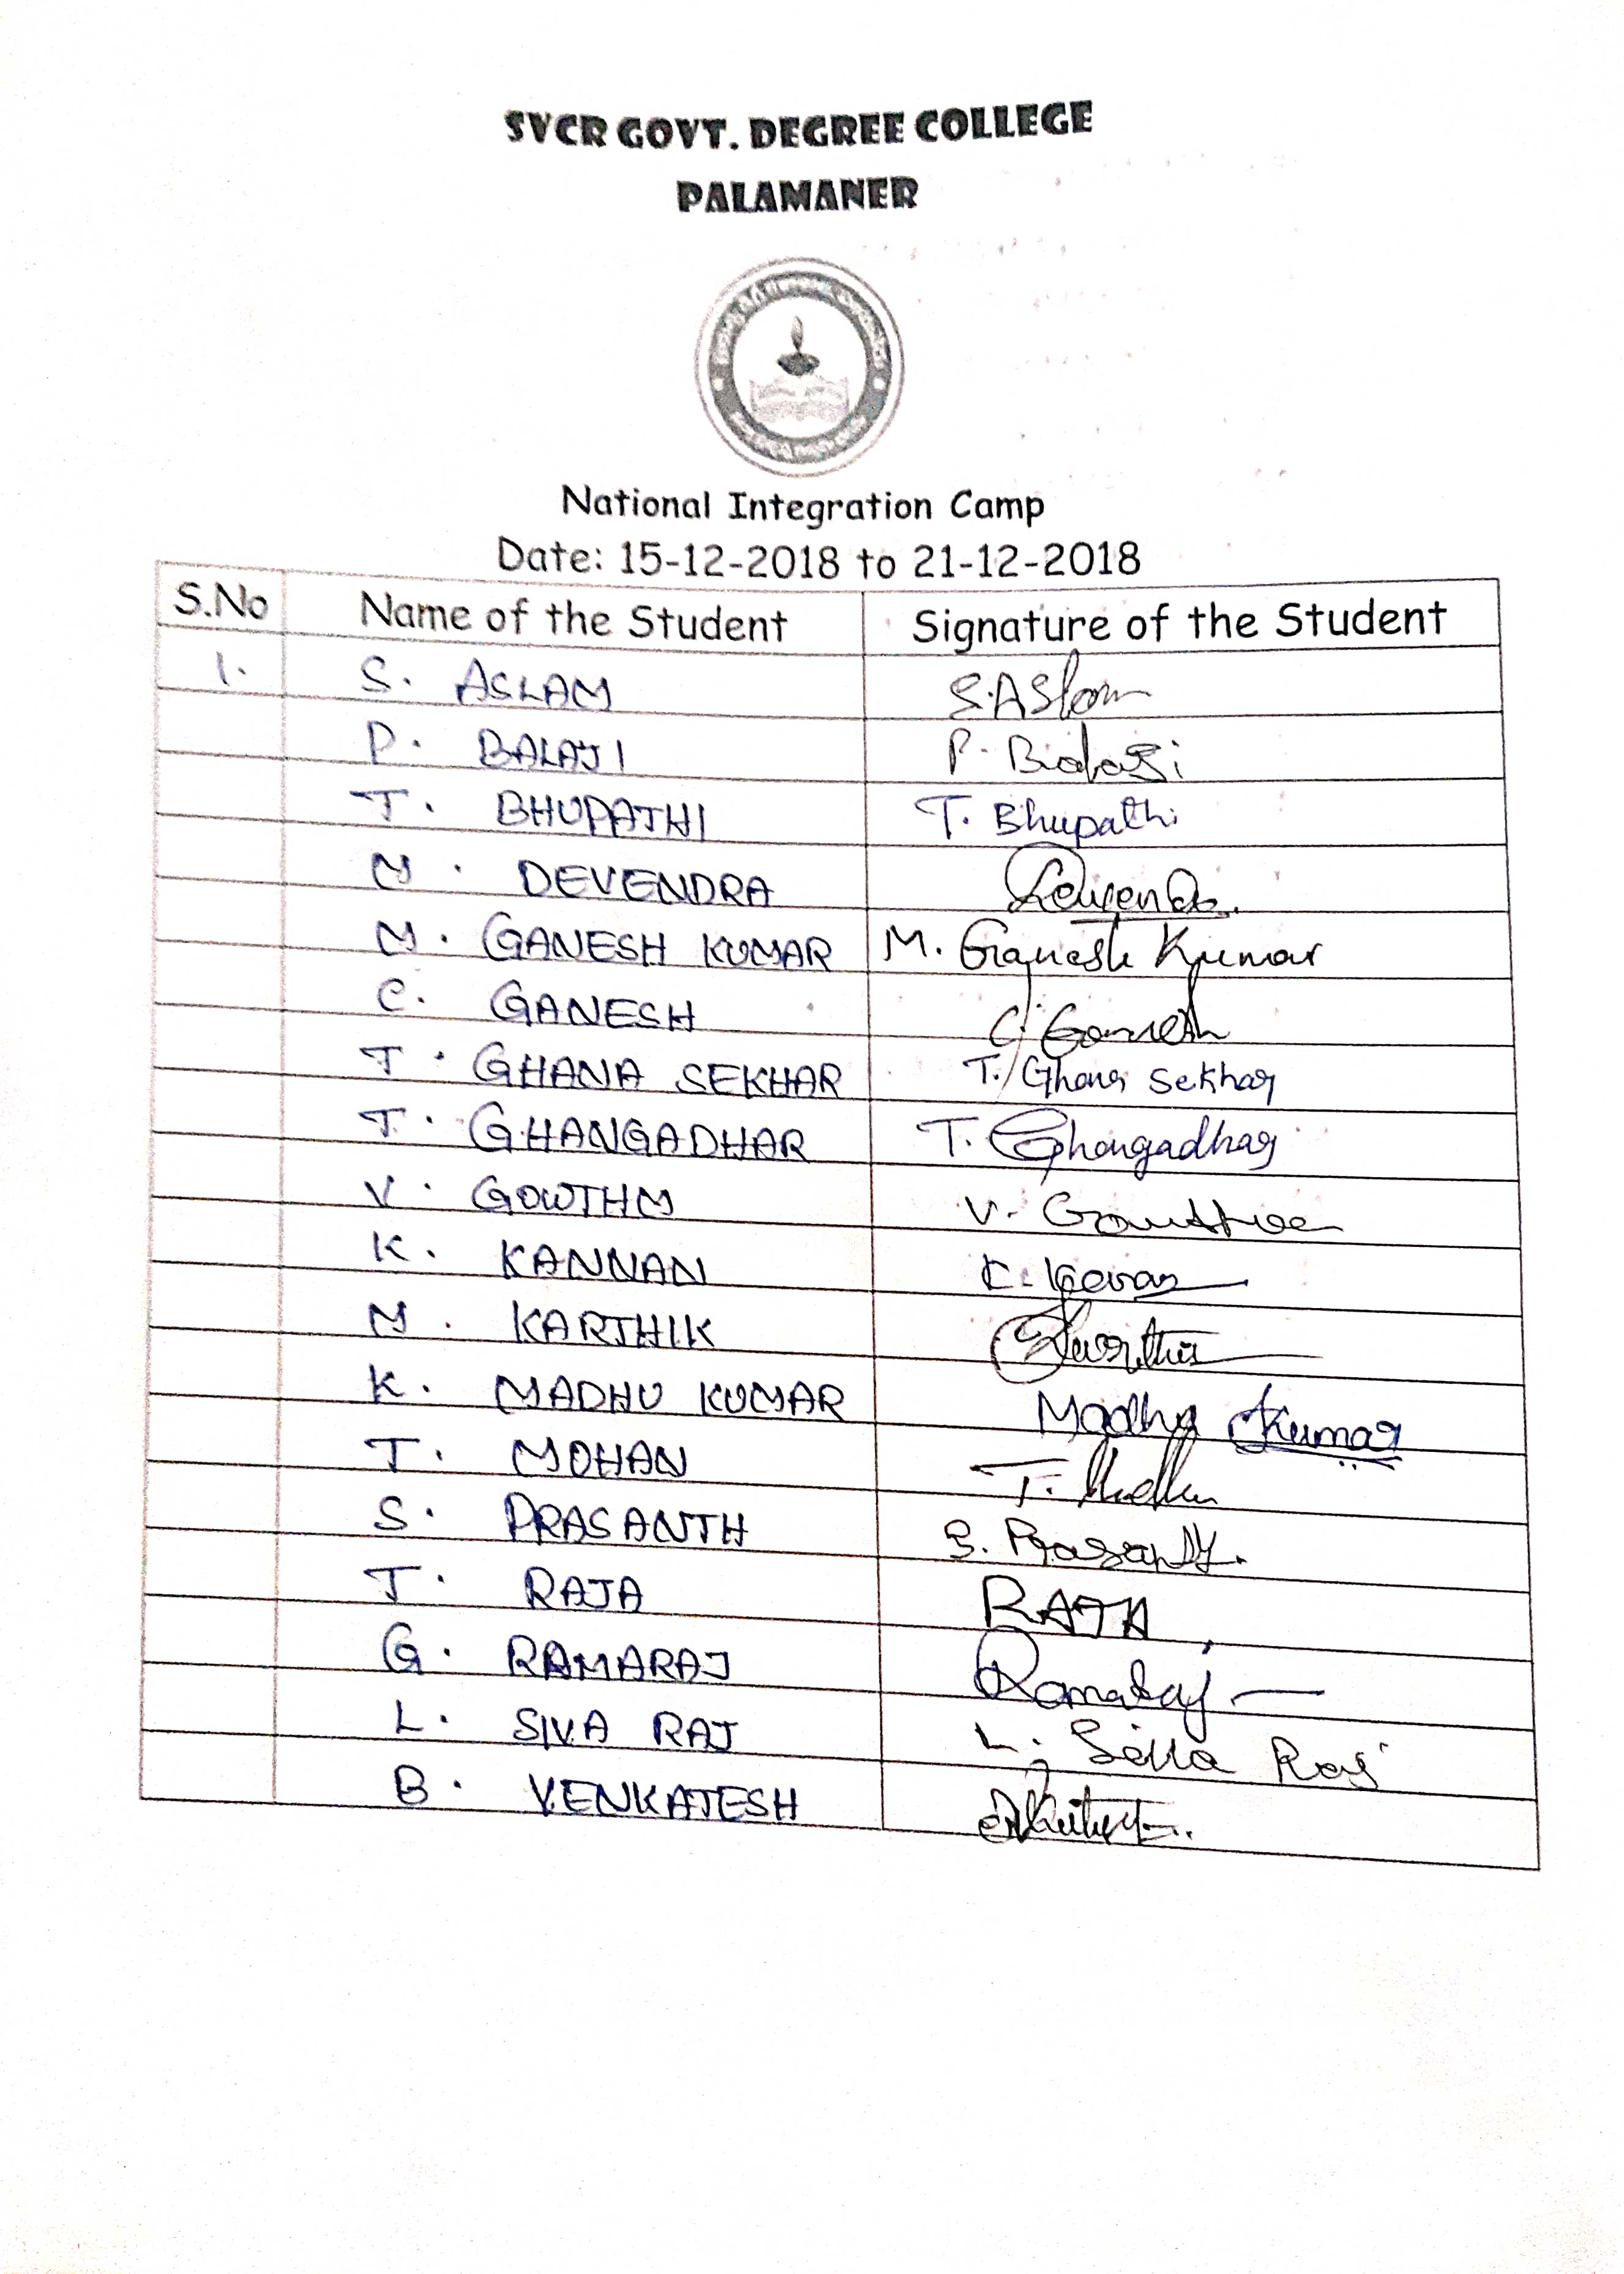 SVCR GOVT. DEGREE COLLEGE
PALAMANER
National Integration Camp
Date: 15-12-2018 to 21-12-2018
S.No Name of the Student Signature of the Student
1. S. ASLAM S. Aslam
P. BALAJI P. Balaji
T. BHUPATHI T. Bhupathi
M. DEVENDRA
M. GANESH KUMAR M. Ganesh Kumar
C. GANESH C. Ganesh
T. GHANA SEKHAR T. Ghana Sekhar
T. GHANGADHAR T. Ghangadhar
V. GOWTHM V.
K. KANNAN K.
M. KARTHIK
K. MADHU KUMAR Madhu Kumar
T. MOHAN T.
S. PRASANTH S. Prasanth.
T. RAJA RAJA
G. RAMARAJ Ramaraj
L. SIVA RAJ L. Siva Raj
B. VENKATESH